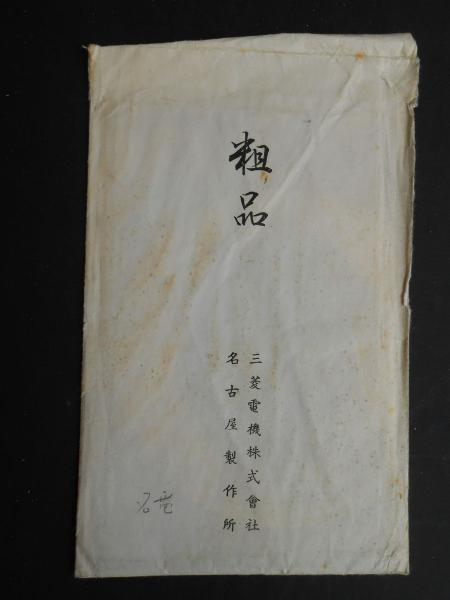 粗品
三菱電機株式會社
名古屋製作所
名電